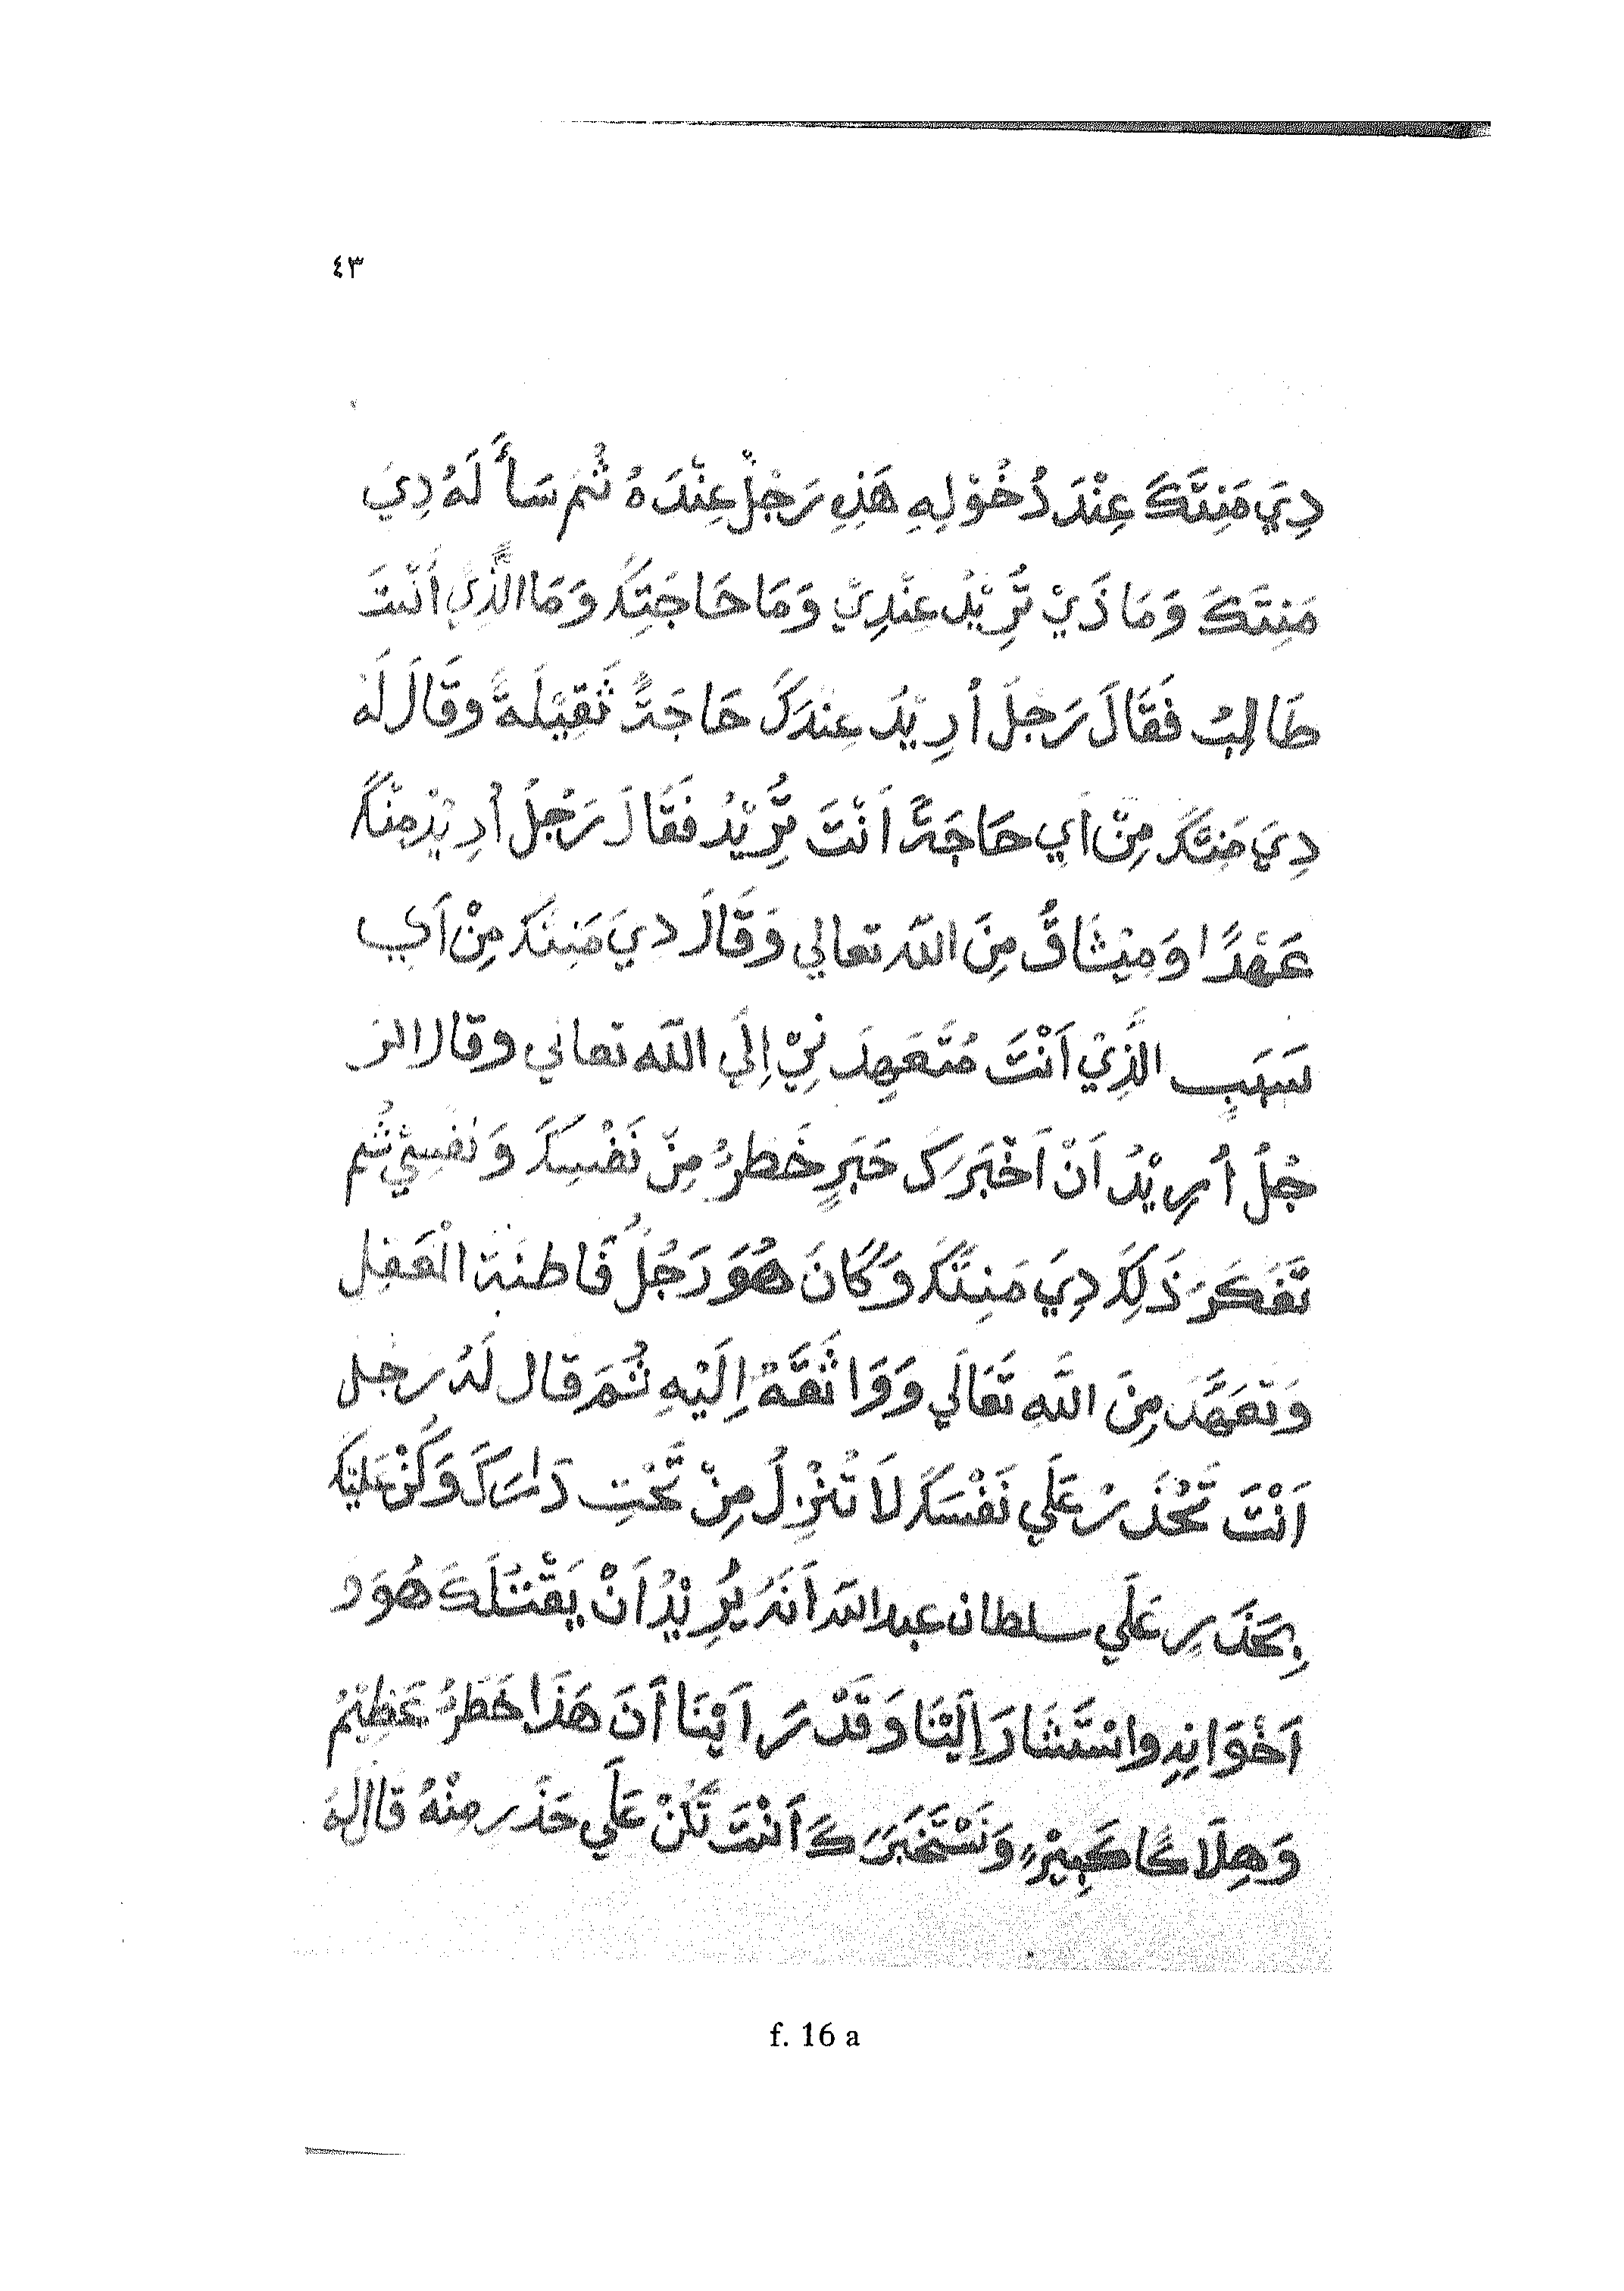 ٤٣
دِيَ مَنِتَّكَ عِنْدَ دُخُوْلِهِ هَذِهِ رَجُلٌ عِنْدَهُ ثُمَ سَأَلَهُ دِيَ
مَنِتَكَ وَمَا ذَيْ تُرِيْدُ عِنْدِيْ وَمَا حَاجَتِكَ وَمَا الَّذِيْ أَنْتَ
طَالِبُ فَقَالَ رَجُلَ أُرِيْدُ عِنْدَكَ حَاجَةً ثَقِيْلَةً وَقَالَ لَهُ
دِيَ مَنِتَّكَ مِنْ اَيِ حَاجَةً اَنْتَ تُرِيْدُ فَقَالَ رَجُلُ أُرِيْدُ مِنْكَ
عَهْدًا وَمِيْثَاقً مِنَ اللّه تعالي وَقَالَ دِيَ مَنِتَكَ مِنْ اَيِ
سَبَبِ الَّذِيْ اَنْتَ مُتَعَهِدَ نِيْ اِلَي اللّه تعالي وقال الر
جُلُ أُرِيْدُ اَنْ اَخْبَرَكَ خَبَرٍ خَطَرُ مِنْ نَفْسِكَ وَنَفْسِيْ ثُم
تَفَكَرَ ذَلِكَ دِيَ مَنِتَّكَ وَكَانَ هُوَ رَجُلُ فَاطِنَة الْعَقِل
وَتَعَهَّدَ مِنَ اللَّهِ تَعَالَي وَوَاثَقَهُ اِلَيْهِ ثُمَ قال لَهُ رجُل
اَنْتَ تَحْذَرْ عَلَي نَفْسَكَ لَا تُنْزِلُ مِنْ تَحْتِ دَارَكَ وَكُنْ عَلَيْكَ
بِحَذَرِ عَلَي سلطان عبد اللّه اَنَهُ يُرِيْدُ اَنْ يَقْتُلَكَ هُوَ و
اَخْوَانِهِ وَاسْتَشَارَ اِلَيْنَا وَقَدْ رَاَيْنَا أَنَ هَذَا خَطَرُ عَظِيْمُ
وَهِلَاكًا كَبِيْرٍ وَنَسْتَخْبَرَكَ اَنْتَ تَكُنْ عَلَي حَذَر مِنْهُ قَالَ لَهُ
f. 16 a